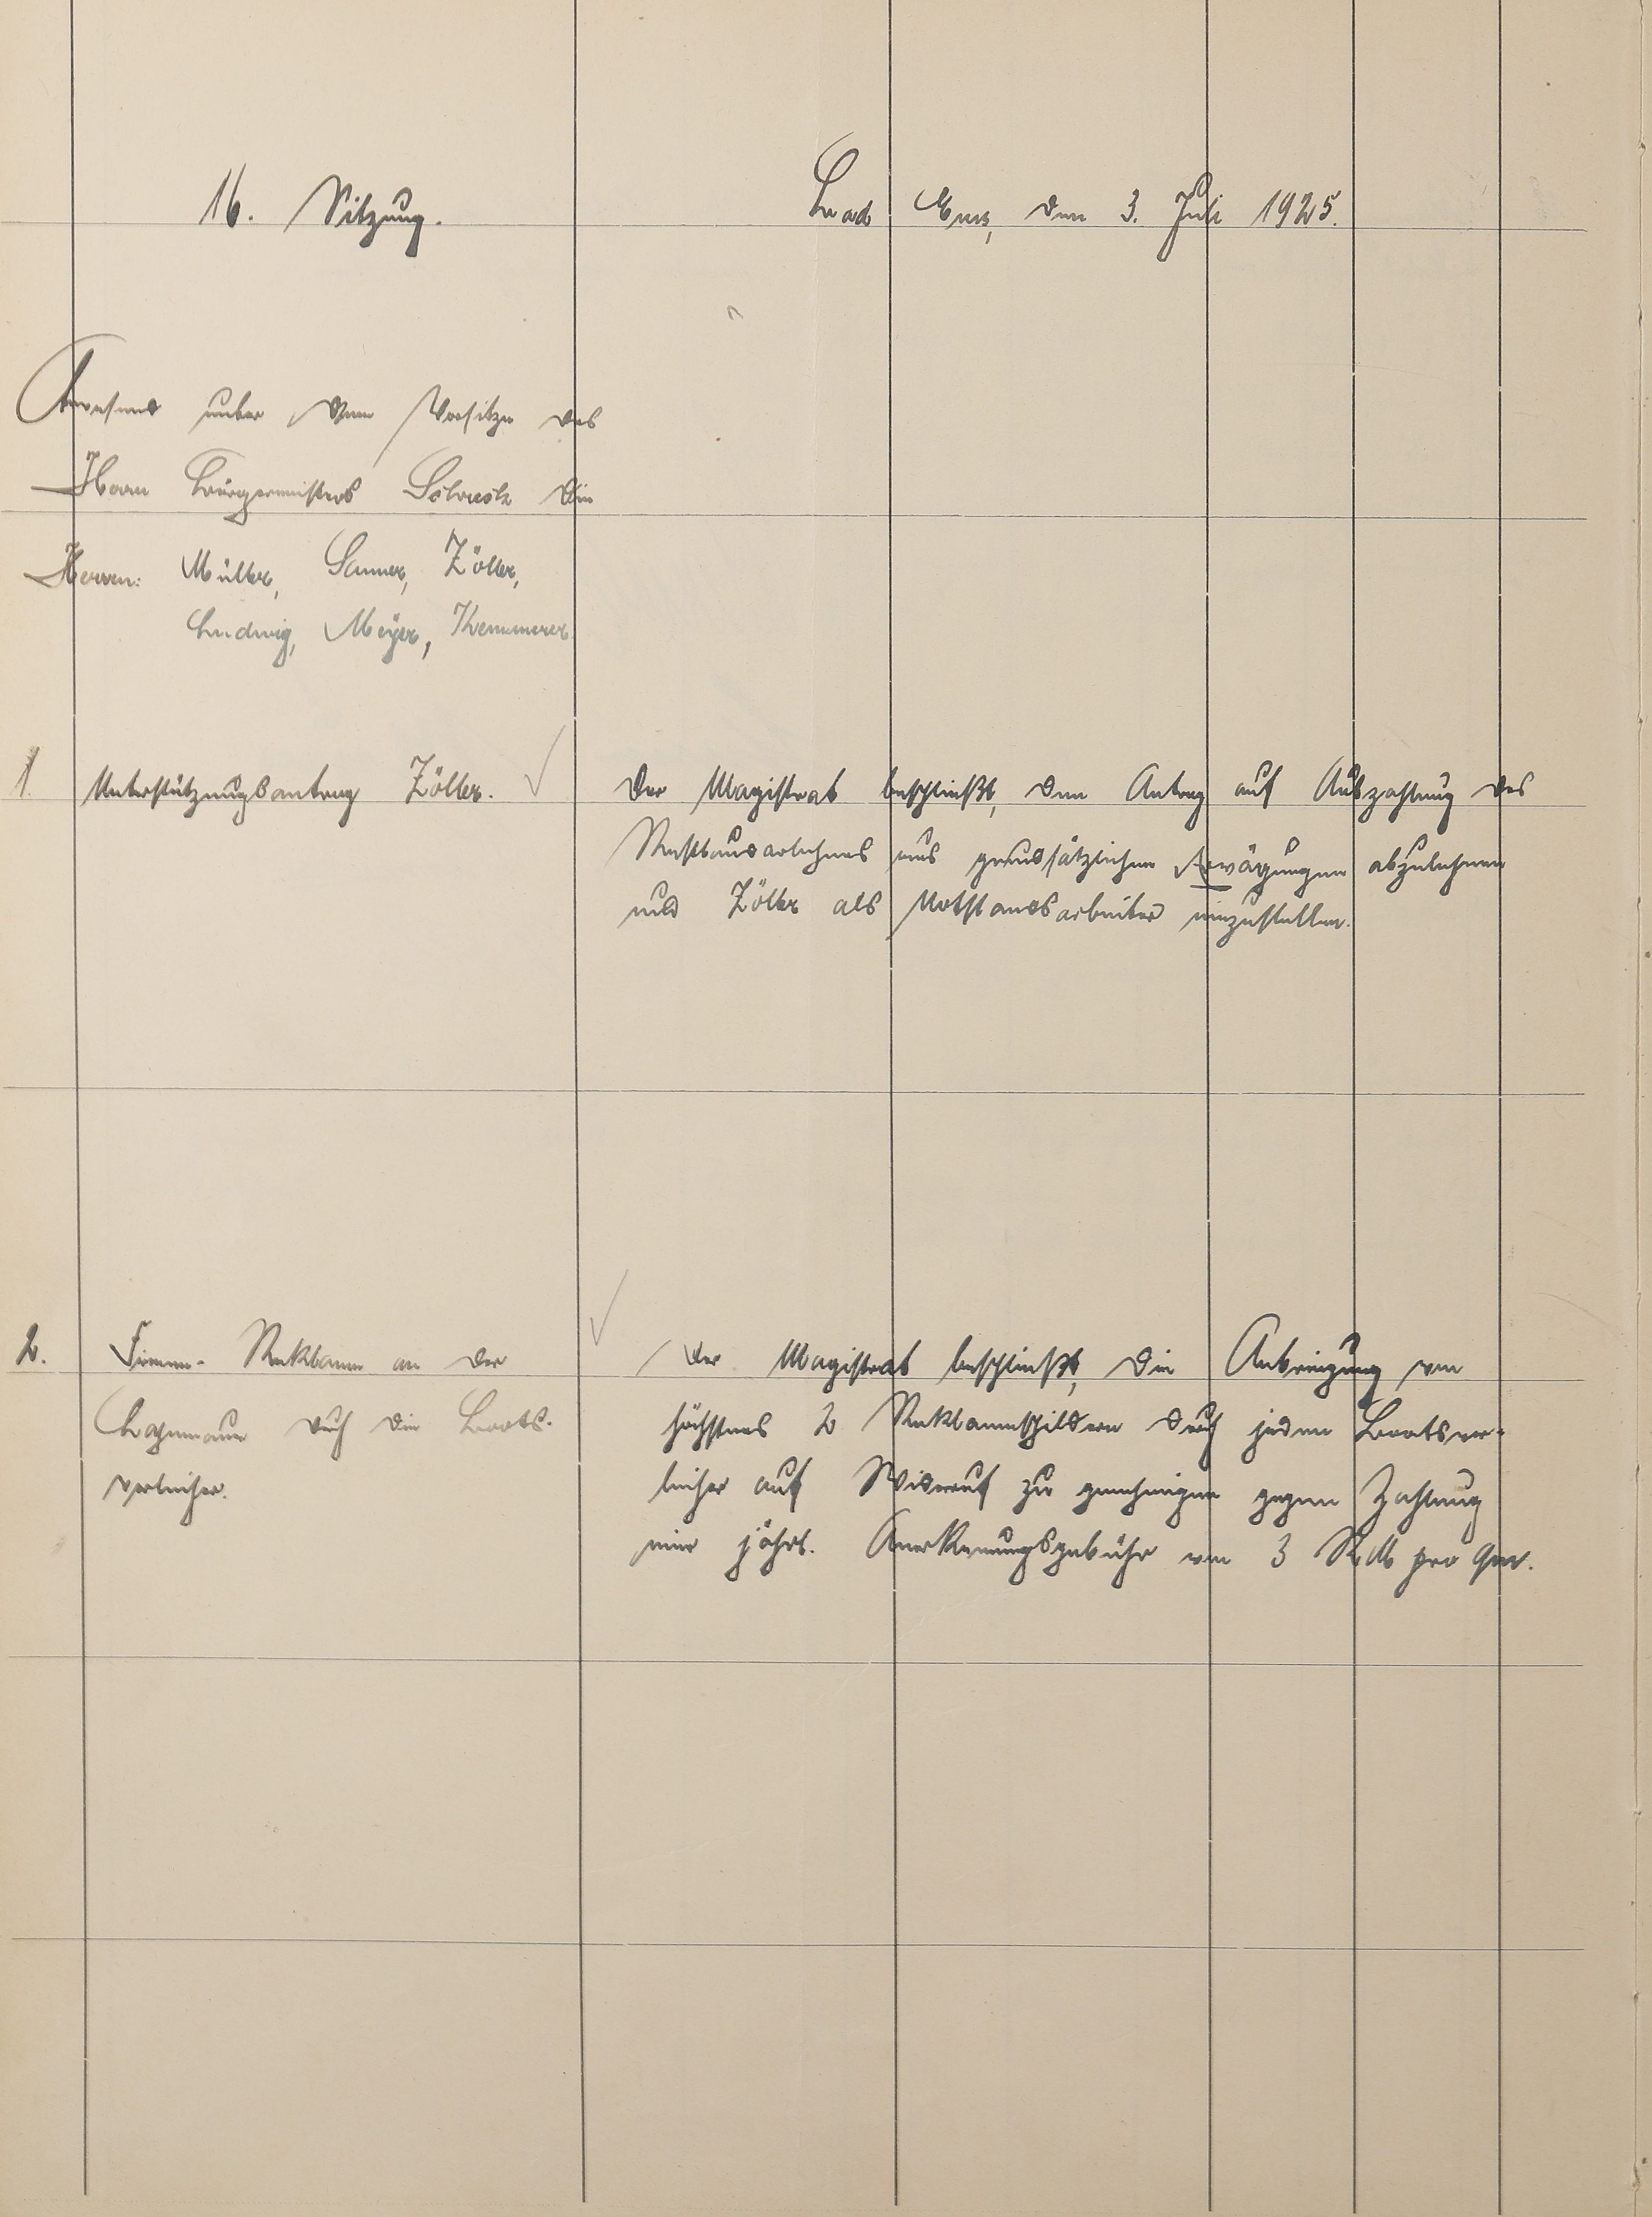 16. Sitzung.
Bad Ems, den 3. Juli 1925.
Anwesend unter dem Vorsitze des
Herrn Bürgermeisters Schreck die
Herren: Müller, Sanner, Zöller,
Ludwig, Meyer, Kemmerer
1. Unterstützungsantrag Zöller.
Der Magistrat beschließt, den Antrag auf Auszahlung des
Restbaudarlehnes aus grundsätzlichen Erwägungen abzulehnen
und Zöller als Notstandsarbeiter einzustellen.
2. Firmen-Reklame an der
Lahnmauer durch die Boots-
verleiher.
Der Magistrat beschließt, die Anbringung von
höchstens 2 Reklameschildern durch jeden Bootsver-
leiher auf Widerruf zu genehmigen gegen Zahlung
einer jährl. Anerkennungsgebühr von 3 RM pro qm.